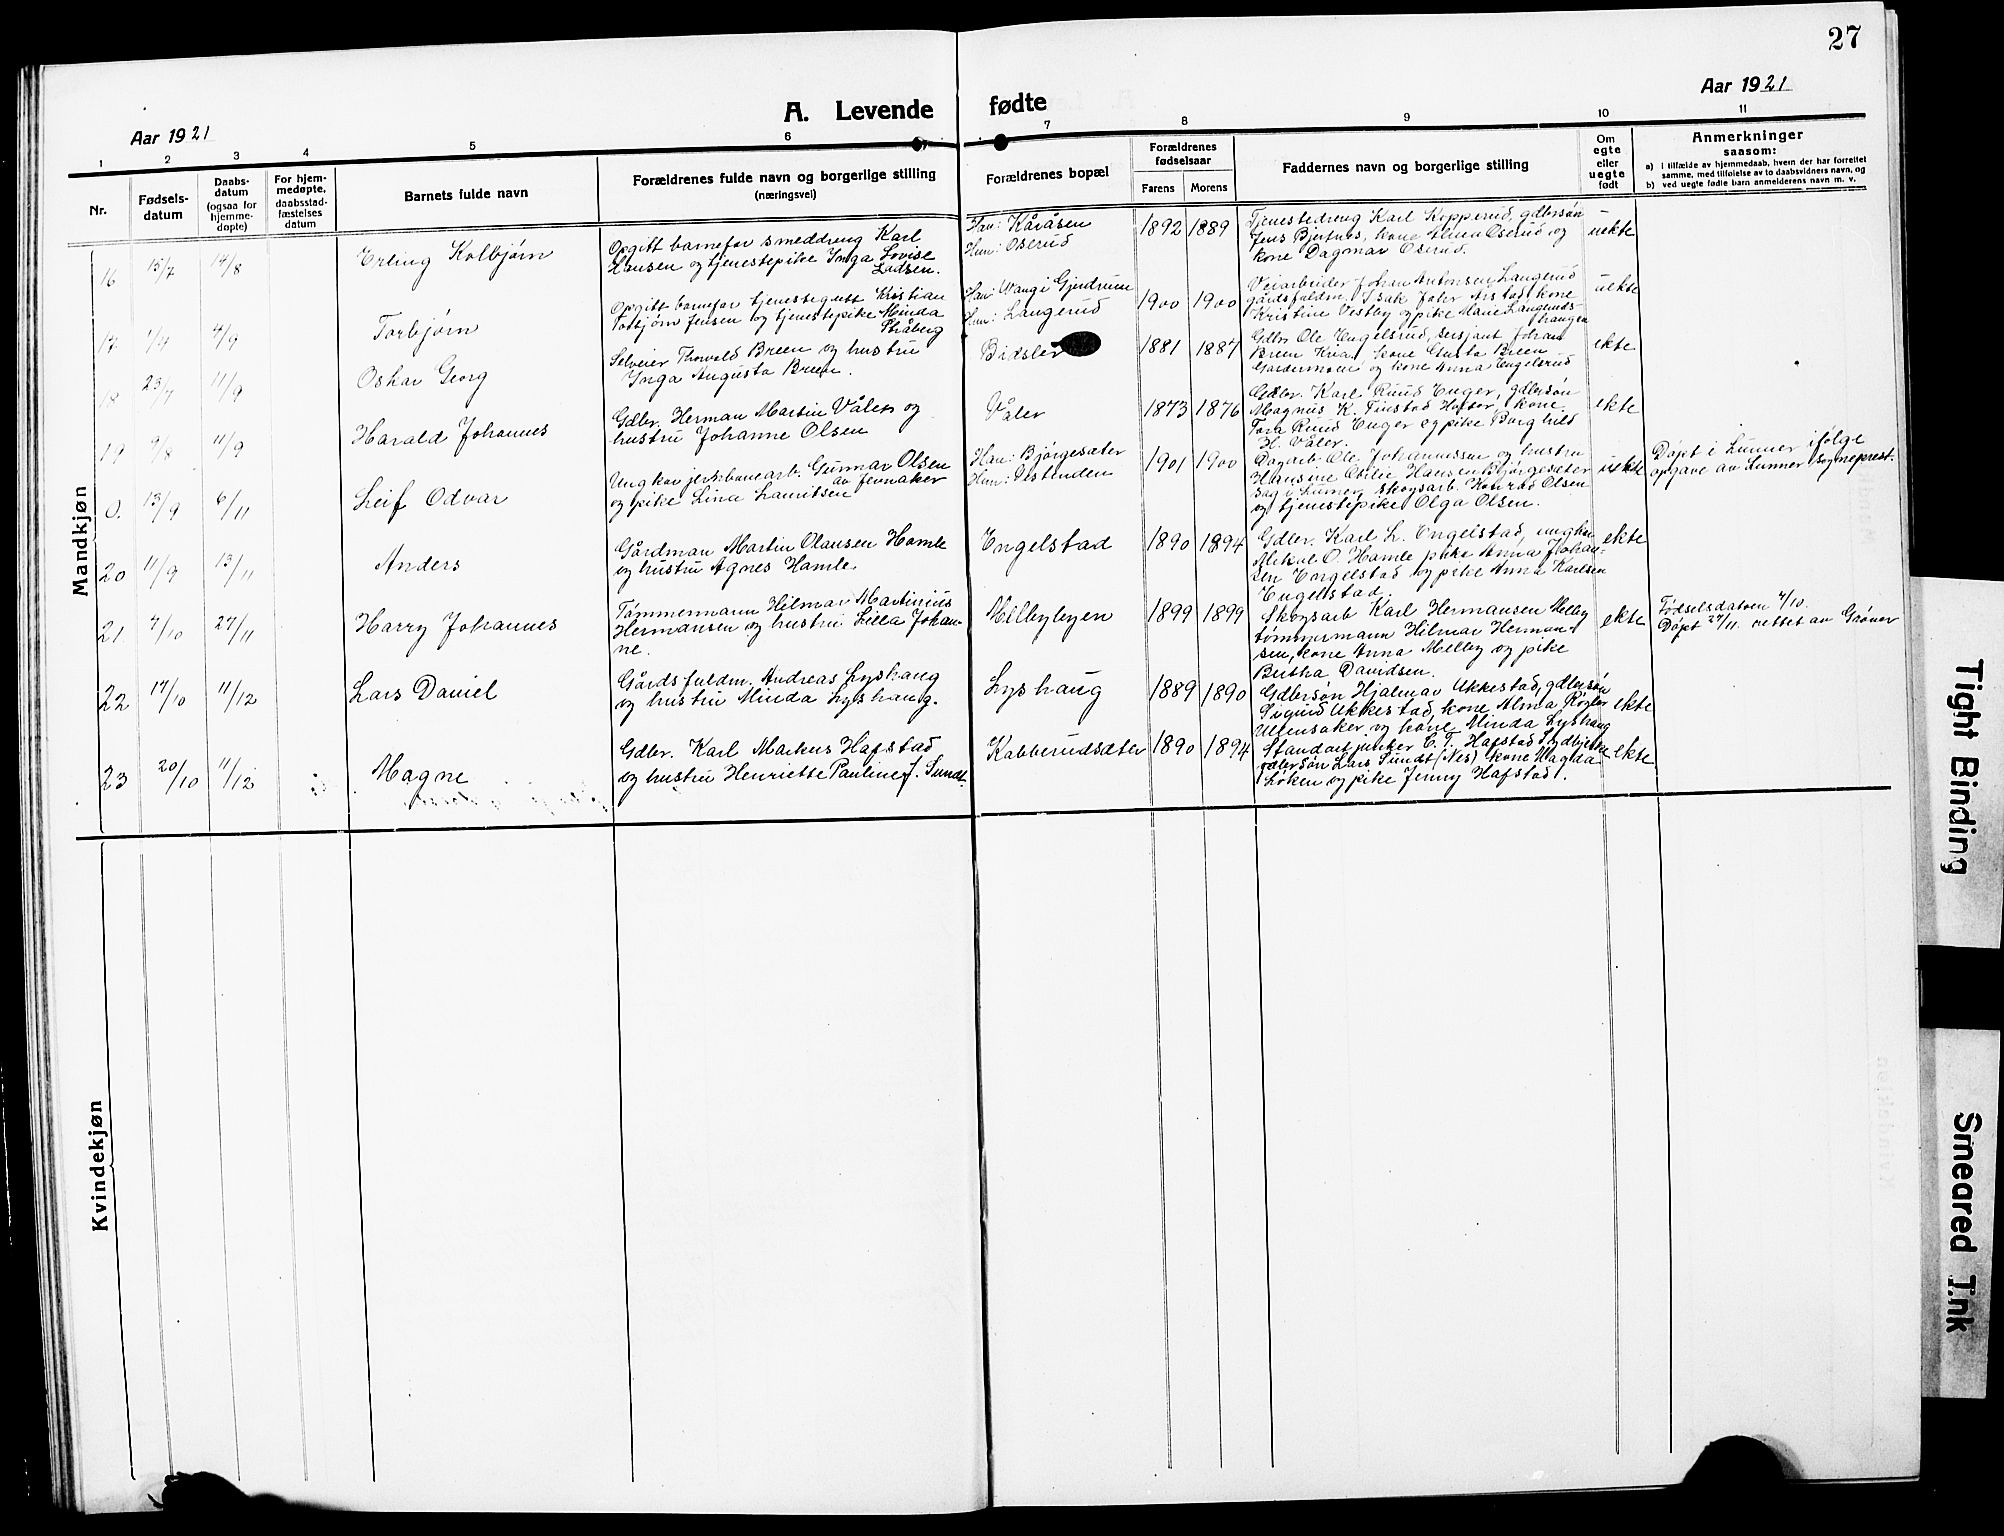 27
Aar 1921
A. Levende fødte
Aar 1921
1 2 3 4 5 6 7 8 9 10 11
Nr.
Fødsels-
datum
Daabs-
datum
(ogsaa for
hjemme-
døpte)
For hjem-
medøpte,
daabsstad-
fæstelses
datum
Barnets fulde navn
Forældrenes fulde navn og borgerlige stilling
(næringsvei)
Forældrenes bopæl
Forældrenes
fødselsaar
Farens Morens
Faddernes navn og borgerlige stilling
Om
egte
eller
uegte
født
Anmerkninger
saasom:
a) i tilfælde av hjemmedaab, hvem der har forrettet
samme, med tilføielse av to daabsvidners navn, og
b) ved uegte fødte barn anmelderens navn m. v.
Mandkjøn
16 15/7 14/8 Erling Kolbjørn
Opgitt barnefar smeddreng Karl
Hansen og tjenestepike Inga Lovise
Ladsen.
Han: Kåråsen
Hun: Oserud
1892 1889
Tjenestedreng Karl Kopperud, gdbersøn
Jens Bjertnes, kone Alma Oserud og
kone Dagmar Oserud.
uekte
17 1/4 4/9 Torbjørn
Opgitt barnefar tjenestegutt Kristian
Torbjørn Jensen og tjenestepike Minda
Stråberg
Han: Vang i Gjerdrum
Hun: Langerud
1900 1900
Veiarbeider Johan Antonsen Langerud
gårdsfuldm. Isak Arstad, kone
Kristine Vestby og pike Marie Langerud-
haugen
uekte
18 23/7 11/9 Oskar Georg
Selveier Thorvald Breen og hustru
Inga Augusta Breen.
Bidsler
1881 1887
Gdbr Ole Engelsrud, sersjant Johan
Breen Kvar, kone Gusta Breen
Gardermoen og kone Anna Engelsrud
ekte
19 9/8 11/9 Harald Johannes
Gdbr. Herman Martin Våler og
hustru Johanne Olsen
Våler
1873 1876
Gdbr. Karl Ruud Enger, gdbersøn
Magnus K. Finstad Holter, kone
Tora Ruud Enger og pike Borghild
H. Våler.
ekte
0. 13/9 6/11 Leif Odvar
Ungkar jernbanearb. Gunnar Olsen
av Jevnaker
og pike Lina Lauritsen
Han: Bjørgesæter
Hun: Vestenden
1901 1900
Dagarb. Ole Johannessen og hustru
Hansine Otilie Hansen Bjørgesæter
Sag i Lunner, skogsarb. Konrad Olsen
og tjenestepike Olga Olsen.
uekte
Døpt i Lunner ifølge
opgave av Lunner sogneprest.
20 11/9 13/11 Anders
Gårdman Martin Olausen Hamle
og hustru Agnes Hamle.
Engelstad
1890 1894
Gdbr. Karl L. Engelstad, ungkar
Mikal O. Hamle pike Anna Johan-
sen Engelstad og pike Anna Karlsen
Engelstad.
ekte
21. 4/10 27/11 Harry Johannes
Tømmermann Hilmar Martinius
Hermansen og hustru Lilla Johan-
ne.
Melbybyen
1899 1899
Skogsarb Karl Hermansen Melby
tømmermann Hilmar Herman-
sen, kone Anna Melby og pike
Bertha Davidsen.
ekte
Fødselsdatoen 4/10.
Døpt 27/11 rettet av Grøner
22 14/10 11/12 Lars Daniel
Gårdsfuldm. Andreas Lyshaug
og hustru Minda Lyshaug.
Lyshaug
1889 1890
Gdbersøn Hjalmar Ukkestad, gdbersøn
Sigurd Ukkestad, kone Alma Røgler
Ullensaker og kone Minda Lyshaug
ekte
23 20/10 11/12 Magne
Gdbr. Karl Markus Hafstad
og hustru Henriette Pauline J. Sundt.
Kabberudsæter
1890 1894
C. T. Hafstad
gdbersøn Lars Sundt (Nes) kone Magda
Løken og pike Jenny Hafstad.
ekte
Kvindekjøn
Tight Binding
Smeared Ink